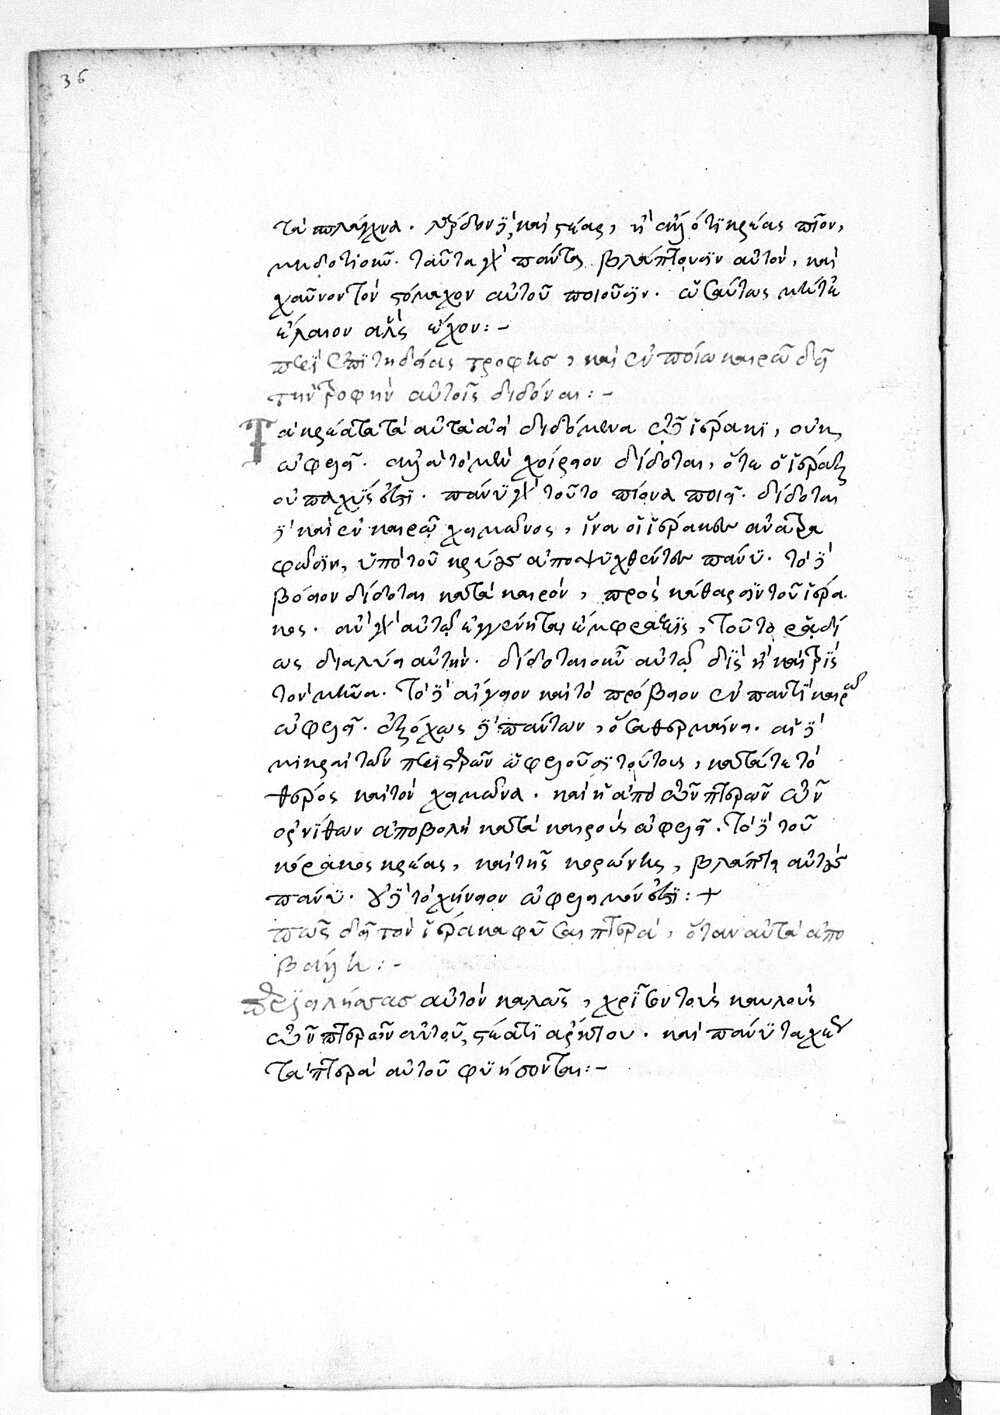 36
τὰ σπλάγχνα. μηδὲν δὲ καὶ στέας, ἢ ἀλλότι κρέας πῖον,
μὴ δότωσαν. ταῦτα γὰρ πάντα βλάπτουσιν αὐτόν, καὶ
χαῦνον τὸν στόμαχον αὐτοῦ ποιοῦσιν. ὡσαύτως μήτε
ἔλαιον ἅλες ἔχον: –
περὶ ἐπιτηδείας τροφῆς, καὶ ἐν ποίω καιρῶ δεῖ
τὴν τροφὴν αὐτοῖς διδόναι: –
Τὰ κρέατα τὰ αὐτὰ ἀεὶ διδόμενα τῶ ἱέρακι, οὐκ
ὠφελεῖ. ἀλλὰ τὸ μὲν χοίρειον δίδοται, ὅτε ὁ ἱέραξ
οὐ παχύς ἐστι. πάνυ γὰρ τοῦτο πίονα ποιεῖ. δίδοται
δὲ καὶ ἐν καιρῶ χειμῶνος, ἵνα οἱ ἱέρακες ἀνατρα
φῶσιν, ὑπὸ τοῦ κρύους ἀποψυχθέντες πάνυ. τὸ δὲ
βόειον δίδοται κατὰ καιρόν, πρὸς κάθαρσιν τοῦ ἱέρα
κος. ἂν γὰρ αὐτῶ ἐγγένηται ἔμφραξις, τοῦτο ῥαδί
ως διαλύει αὐτήν. δίδοται οὖν αὐτῶ δὶς ἢ καὶ τρὶς
τὸν μῆνα. τὸ δὲ αἴγειον καὶ τὸ πρόβειον ἐν παντὶ καιρῶ
ὠφελεῖ. ἐξόχως δὲ πάντων, ὅσα θερμαίνει. αἱ δὲ
μικραὶ τῶν περιστερῶν ὠφελοῦσι τούτοις, κατά τε τὸ
θέρος καὶ τὸν χειμῶνα. καὶ ἡ ἀπὸ τῶν πτερῶν τῶν
ὀρνίθων ἀποβολὴ κατὰ καιροὺς ὠφελεῖ. τὸ δὲ τοῦ
κόρακος κρέας, καὶ τῆς κορώνης, βλάπτει αὐτοὺς
πάνυ. οὐδὲ τὸ χήνειον ὠφέλημόν ἐστι: +
πῶς δεῖ τὸν ἱέρακα φῦσαι πτερά, ὅταν αὐτὰ ἀπο
βάλη: –
αὐτὸν καλῶς, χρῖσον τοὺς καυλοὺς
τῶν πτερῶν αὐτοῦ, στέατι ἄρκτου. καὶ πάνυ ταχέως
τὰ πτερὰ αὐτοῦ φυήσονται: –